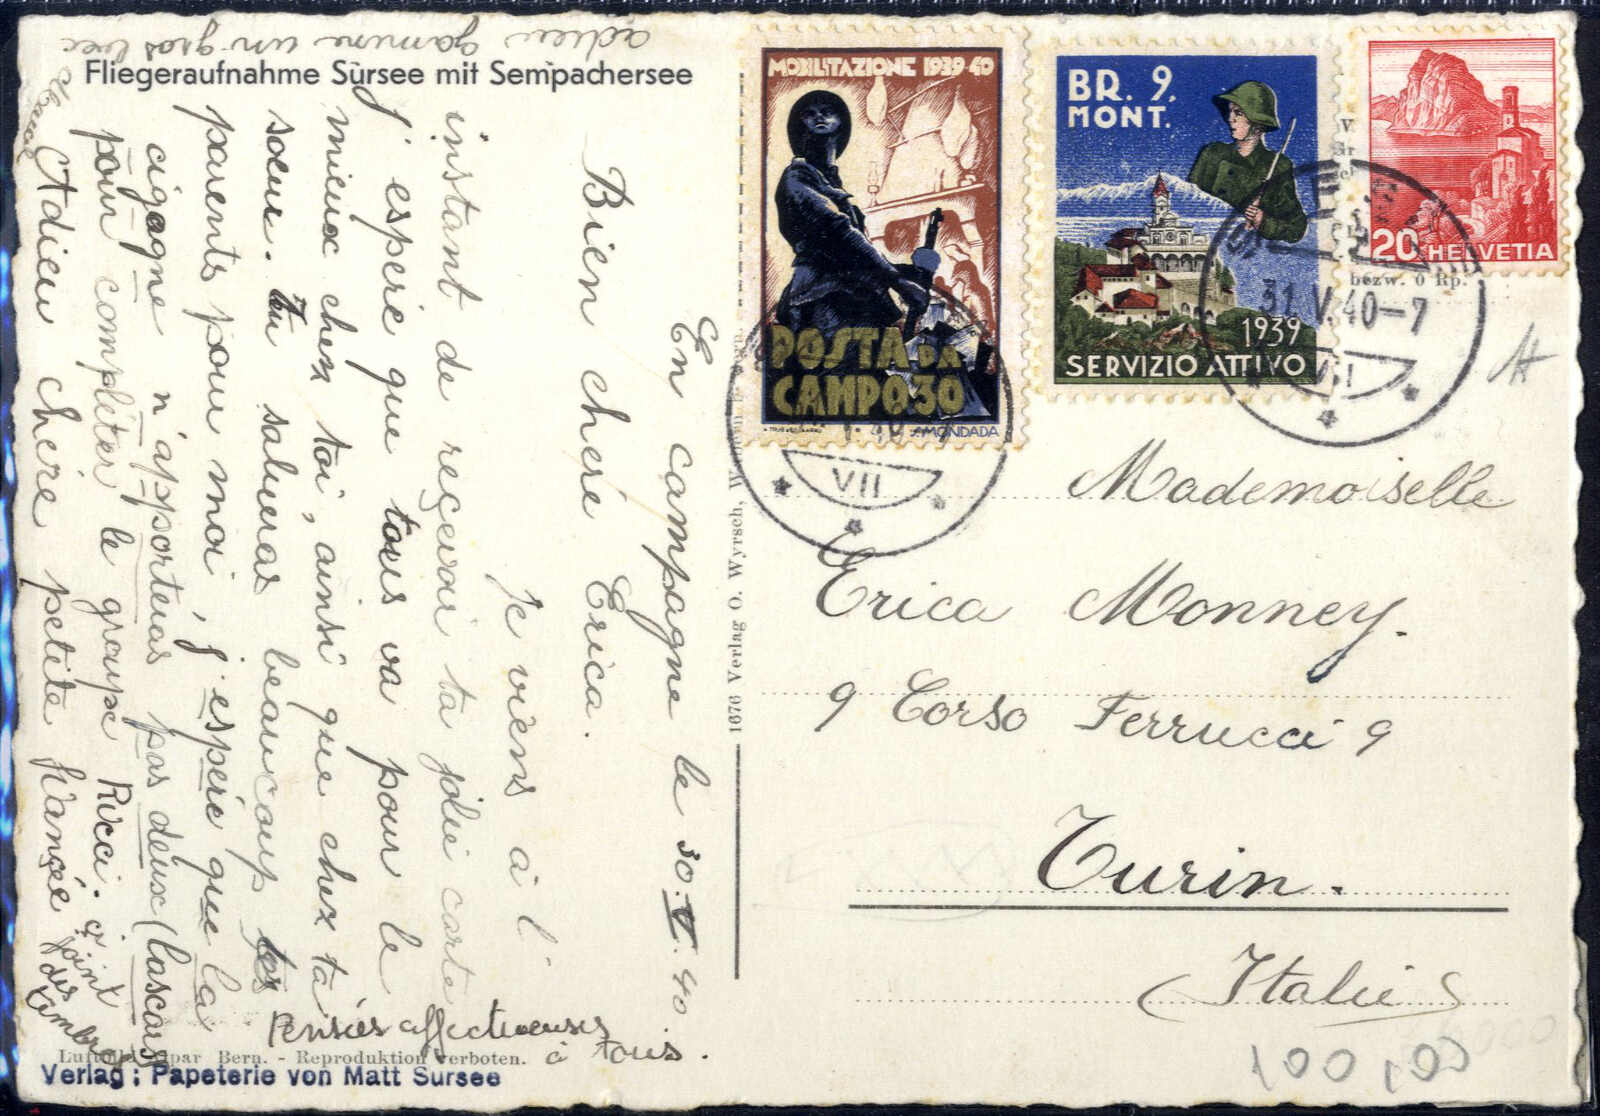 Fliegeraufnahme Sursee mit Sempachersee
En campagne le 30.V.40
Bien chère Erica.
Je viens à l'
instant de reçevoir ta jolie carte
J'espère que tous va pour le
mieux chez toi, ainsi que chez ta
soeur. tu salueras beaucoup tes
parents pour moi, j'espère que la
cigogne n'apporteras pas deux (lascars
pour complèter le groupe Ricci.
Adieu chère petite fiancée
ci joint
des
timbres
Pensées affectueuses
à tous.
adieu gamine un gros bec
MOBILITAZIONE 1939 40
POSTA DA
CAMPO 30
AMONDADA
BR. 9.
MONT.
1939
SERVIZIO ATTIVO
20 HELVETIA
bezw. 0 Rp.
31.V.40-7
VII
VII
Mademoiselle
Erica Monney.
9 Corso Ferrucci 9
Turin.
(Italie)
1076 Verlag O. Wyrsch, W
Reproduktion verboten.
Verlag: Papeterie von Matt Sursee
100,00